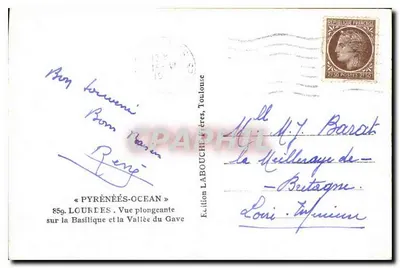 Bon souvenir
Bons baisers
René
« PYRÉNÉES-OCEAN »
859. LOURDES. Vue plongeante
sur la Basilique et la Vallée du Gave
Edition LABOUCHE Frères, Toulouse
Mlle M. J. Barat
la Meilleraye de-
Bretagne
Loire-Inférieure